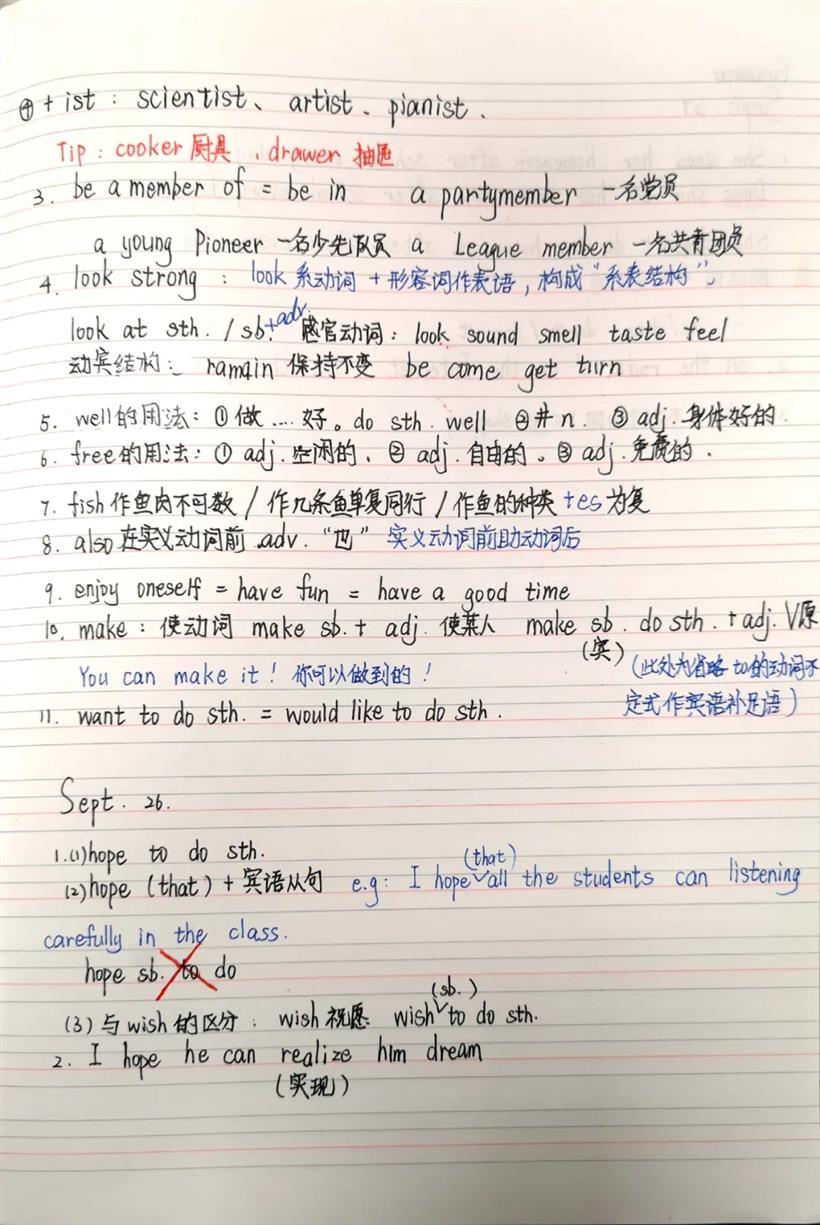 ④ + ist : scientist、 artist、 pianist、
Tip : cooker 厨具 、drawer 抽屉
3. be a member of = be in a partymember 一名党员
a young Pioneer 一名少先队员 a League member 一名共青团员
4. look strong : look 系动词 + 形容词作表语，构成“系表结构”。
look at sth. / sb. +adv. 感官动词：look sound smell taste feel
动宾结构： ramain 保持不变 be come get turn
5. well的用法：①做....好。do sth. well ②井 n. ③ adj. 身体好的.
6. free的用法：① adj. 空闲的、② adj. 自由的。③ adj. 免费的.
7. fish 作鱼肉不可数 / 作几条鱼单复同行 / 作鱼的种类 +es 为复
8. also 在实义动词前 adv. “也” 实义动词前助动词后
9. enjoy oneself = have fun = have a good time
10. make : 使动词 make sb. + adj. 使某人 make sb. do sth. + adj. V原
(实)
You can make it! 你可以做到的! (此处为省略to的动词不
11. want to do sth. = would like to do sth. 定式作宾语补足语)
Sept. 26.
1.(1)hope to do sth.
(that)
(2)hope (that) + 宾语从句 e.g: I hope all the students can listening
carefully in the class.
hope sb. to do
(sb.)
(3) 与wish的区分 : wish 祝愿 wish to do sth.
2. I hope he can realize him dream
(实现)